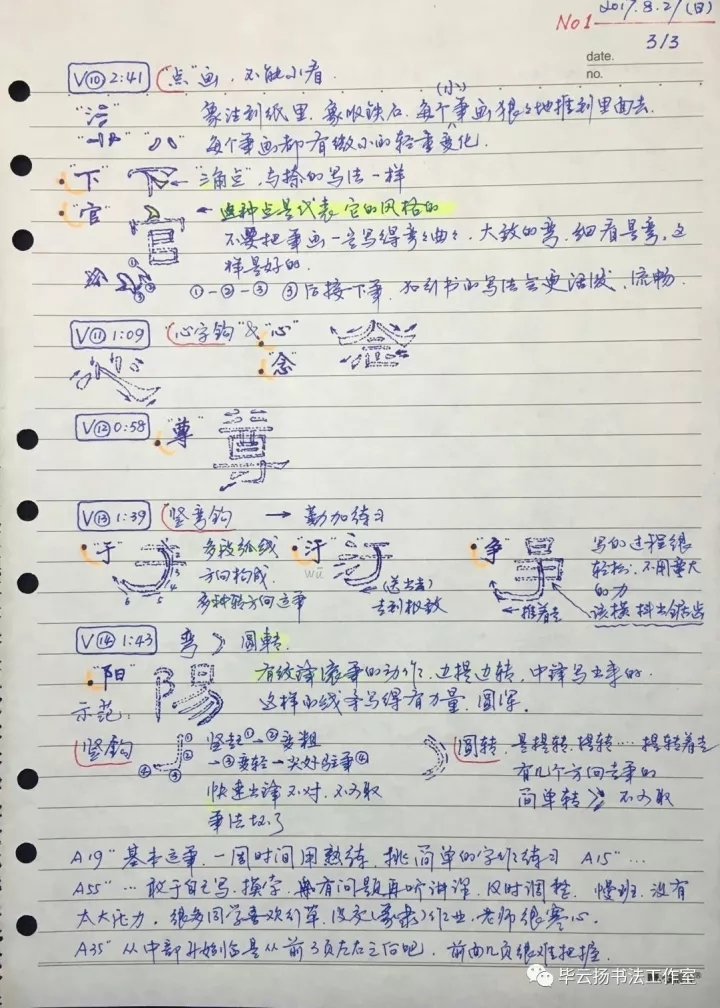 2017.8.27(日)
No1
3/3
date.
no.
V⑩ 2:41 “点”画，不能小看．
(小)
象注到纸里．象吸铁石．每个笔画狠狠地推到里面去．
每个笔画都有微小的轻重变化．
“下” “三角点”，与捺的写法一样
“官” 这种点是代表它的风格的
不要把笔画一定写得弯弯曲曲，大致的弯．细看是弯，这
样是好的．
①-②-③ ③后接下笔．
①
②
③
V⑪ 1:09 “心字钩”& “心”
“念”
V⑫ 0:58 “尊”
V⑬ 1:39 竖弯钩 → 勤加练习
“于” 多段弧线 “汙” “争” 写的过程很
方向构成． wū 轻松．不用重大
多种转方向运笔 (送出去) 的力
去到极致 推着走
V⑭ 1:43 弯 圆转．
“阳” 有绞锋滚笔的动作．边提边转，中锋写出来的．
示范： 这样的线条写得有力量．圆浑．
竖钩 竖起① → ②变粗 圆转．是提转．提转…提转着走
→ ③变轻 → 尖好驻笔④ 有几个方向去笔的
快速出锋不对．不可取 简单转 不可取
笔法坏了
A19" 基本运笔．一周时间用熟练．挑简单的字作练习 A15" …
A55" …敢于自己写．摸索．具有问题再听讲课．及时调整．慢班．没有
太大压力．很多同学喜欢行草．没交(篆隶)作业．老师很寒心．
A35" 从中部开始临是从前3页左右之后吧．前面几页很难把握．
毕云扬书法工作室